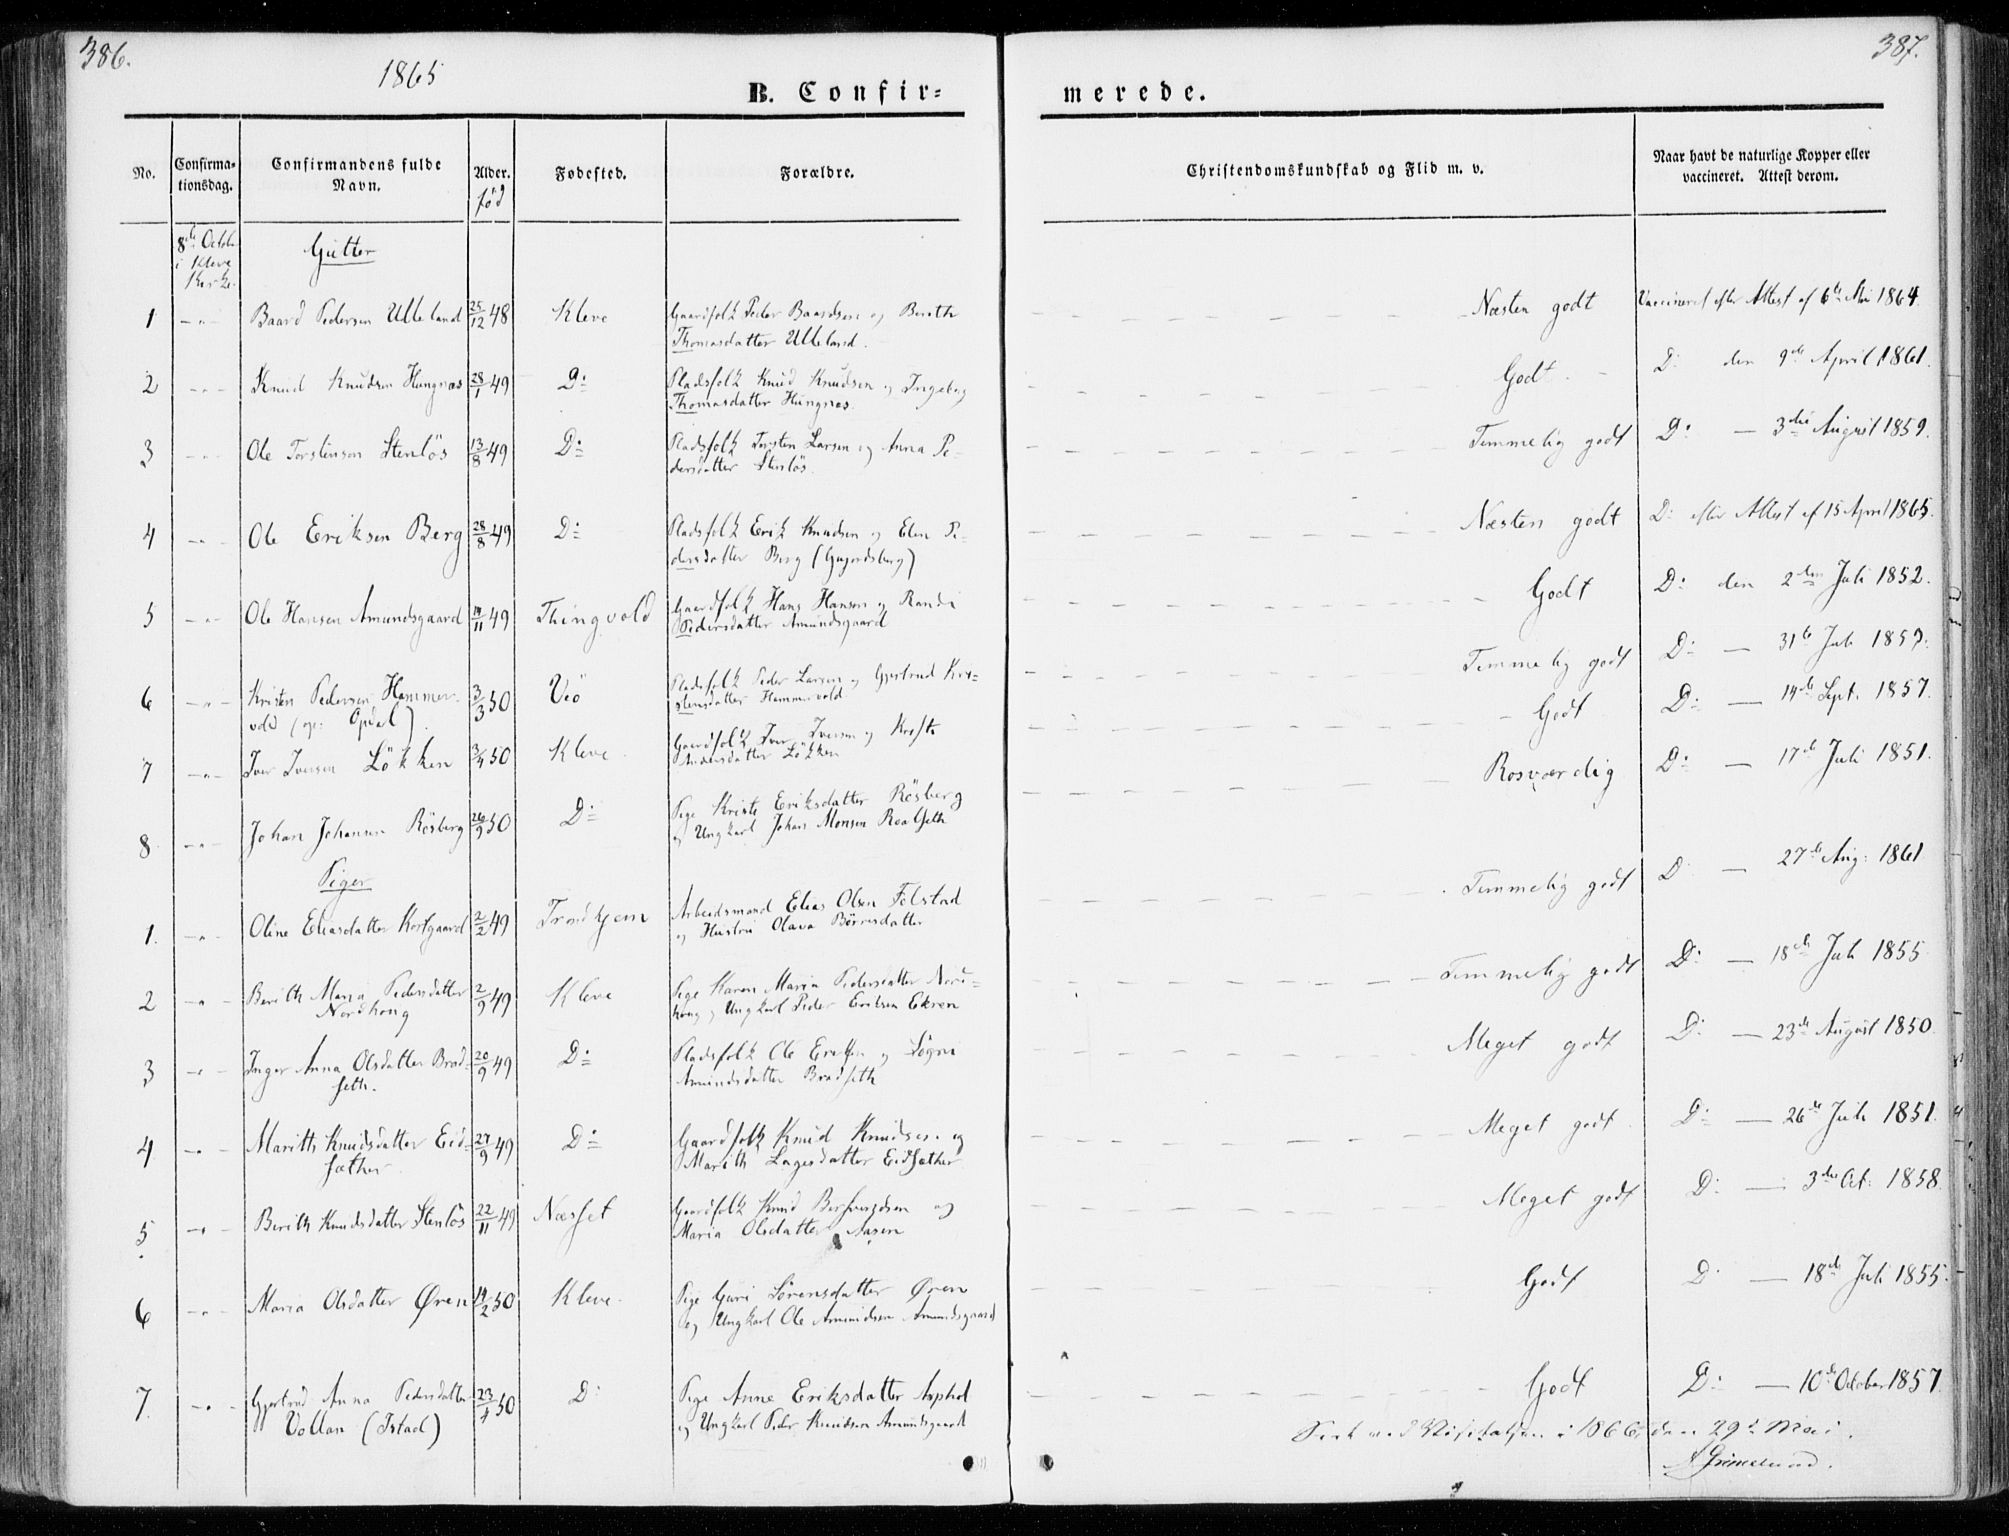 386.
1865
B. Confir=
merede.
387.
No.
Confirma-
tionsdag.
Confirmandens fulde
Navn.
Alder.
fød
Fødested.
Forældre.
Christendomskundskab og Flid m. v.
Naar havt de naturlige Kopper eller
vaccineret. Attest derom.
8de Octob.
i Kleve
Kirke.
Gutter
1 Baard Pedersen Ulleland 25/12 48 Kleve Gaardfolk Peder Baardsen og Berith
Thomasdatter Ulleland.
Næsten godt Vaccineret efter Attest af 6te Mai 1864.
2 Knud Knudsen Hungnæs 28/1 49 D: Pladsfolk Knud Knudsen og Ingebog
Thomasdatter Hungnes.
Godt. D: den 9de April 1861.
3 Ole Torstensen Stenlös 13/8 49 D: Pladsfolk Torsten Larsen og Anna Pe-
dersdatter Stenlös.
Temmelig godt D: — 3die August 1859.
4 Ole Eriksen Berg 28/8 49 D: Pladsfolk Erik Knudsen og Elen Pe-
dersdatter Berg
Næsten godt D: efter Attest af 15 April 1865.
5 Ole Hansen Amundsgaard /11 49 Thingvold Gaardfolk Hans Hansen og Randi
Pedersdatter Amundsgaard
Godt D: den 2den Juli 1852.
6 Kristen Pedersen Hammer-
vold (op: Opdal) 3/3 50 Veö Pladsfolk Peder Larsen og Gjertrud Kri-
stensdatter Hammervold
Temmelig godt D: — 31te Juli
7 Iver Iversen Lökken 3/4 50 Kleve Gaardfolk Iver Iversen og
Andersdatter Lökken
Godt D: — 14de Sept. 1857.
8 Johan Johansen Rösberg 26/9 50 D: Pige Eriksdatter Rösberg
og Ungkarl Johan Monsen
Rosværdig D: — 17de Juli 1851.
Piger
1. Oline Eliasdatter Kortgaard 2/2 49 Trondhjem Arbeidsmand Elias Olsen Folstad
og Hustru Olava Börresdatter
Temmelig godt D: — 27de Aug: 1861
2 Berith Maria Pedersdatter
Nordhong 2/9 49 Kleve Pige Karen Maria Pedersdatter Nord-
hong og Ungkarl Peder Eriksen Ekren
Temmelig godt D: — 18de Juli 1855
3 Inger Anna Olsdatter Brad-
seth. 20/9 49 D: Pladsfolk Ole Eriksen og
Amundsdatter Bradseth
Meget godt D: — 23de August 1850.
4 Marith Knudsdatter Eid-
sæther 27/9 49 D: Gaardfolk Knud Knudsen og
Marith Lagesdatter Eidsæther
Meget godt D: — 26de Juli 1851.
5 Berith Knudsdatter Stenlös 22/11 49 Næsset Gaardfolk Knud og
Maria Olsdatter Aasen
Meget godt D: — 3die Oct: 1858.
6 Maria Olsdatter Øren 14/2 50 Kleve. Pige Guri Sörensdatter Øren
og Ungkarl Ole Amundsen Amundsgaard
Godt D: — 18de Juli 1855.
7. Gjertrud Anna Pedersdatter
Vollan (Istad) 23/4 50 D: Pige Anne Eriksdatter Asphol
og Ungkarl Peder Knudsen Amundsgaard
Godt D: — 10de October 1857.
Seet ved Visitatsen i 1866 den 29de Mai.
Grimelund.